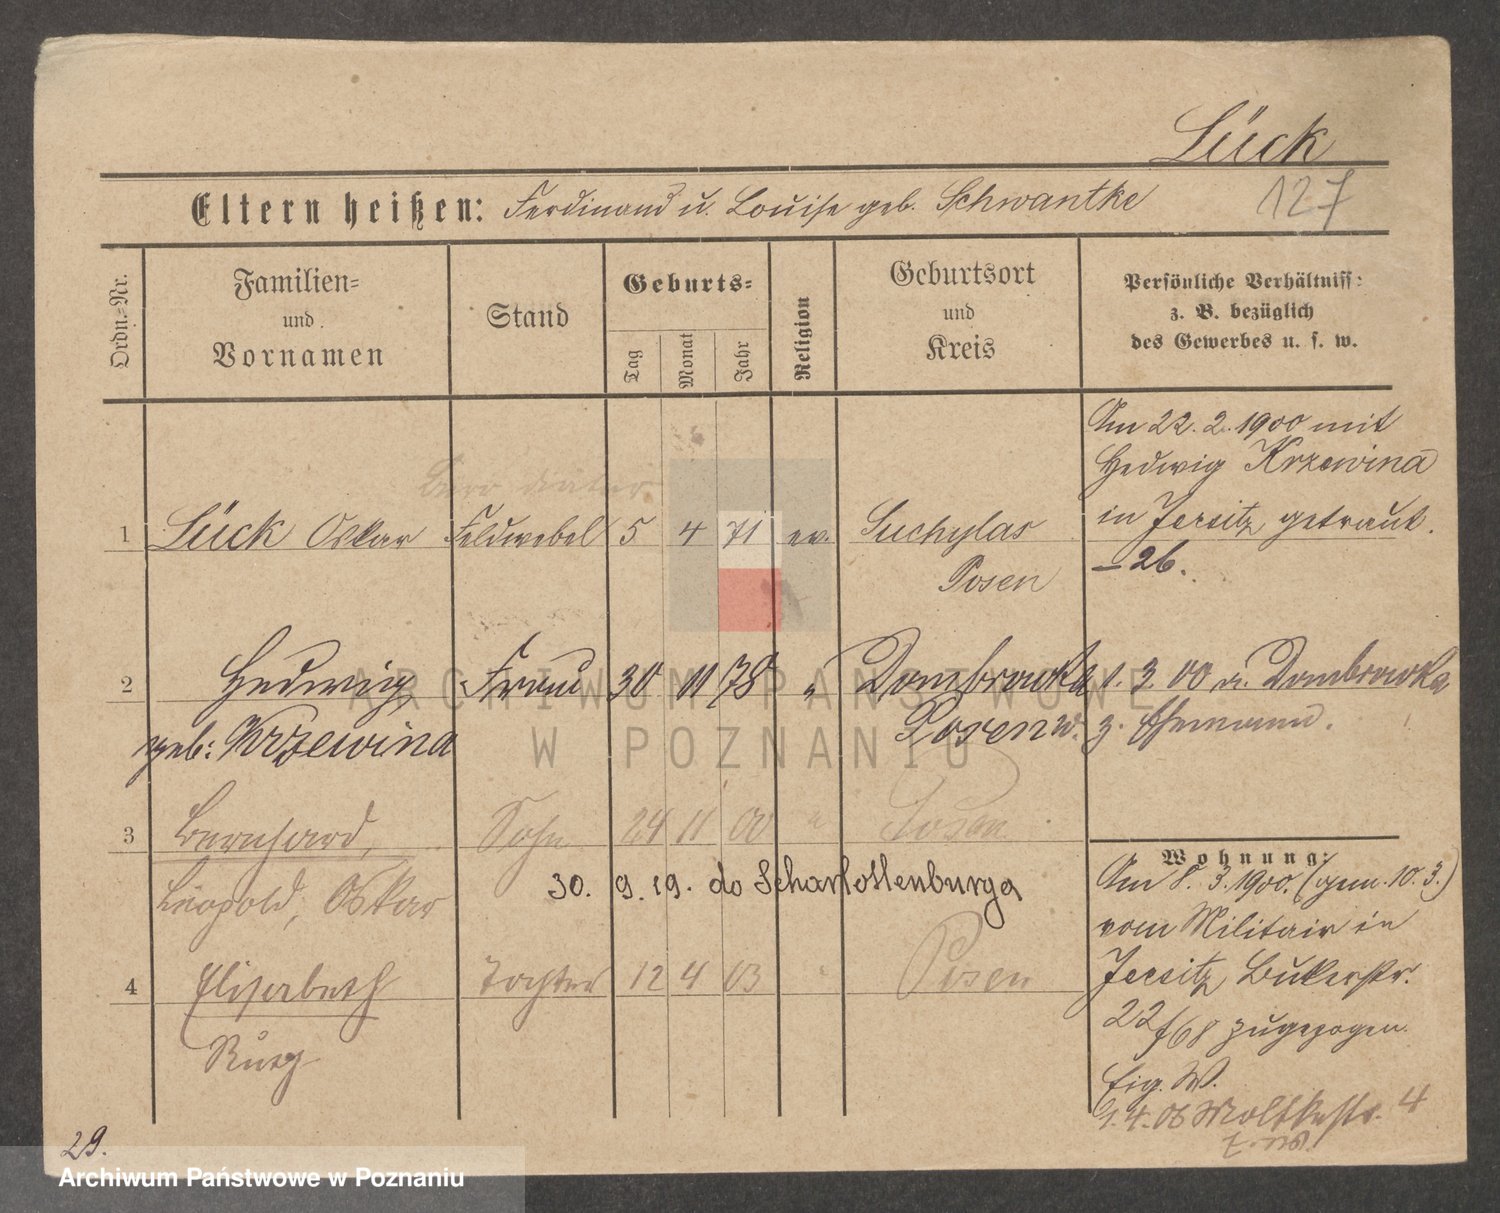 Lück
Eltern heißen: Ferdinand u. Louise geb. Schwantke
127
Ordn.-Nr.
Familien-
und
Vornamen
Stand
Geburts-
Tag
Monat
Jahr
Religion
Geburtsort
und
Kreis
Persönliche Verhältniss:
z. B. bezüglich
des Gewerbes u. s. w.
Am 22. 2. 1900 mit
Hedwig Krzewina
in Jersitz getraut.
– 26.
1 Lück Oskar Feldwebel 5 4 71 ev. Suchylas
Posen
2 Hedwig Frau 30 11 78 " Dombrowka 1. 3. 00 a. Dombrowka
geb: Krzewina Posen W. z. Ehemann.
3 Bernhard, Sohn 24 11 00 " Posen
Leopold, Oskar
30. 9. 19. do Scharlottenburga
4 Elisabeth Tochter 12 4 03 " Posen
Wohnung:
Am 8. 3. 1900. (gem. 10. 3.)
vom Militair in
Jersitz Bukerstr.
22/68 zugezogen.
Eig. W.
1. 4. 06 Moltkestr. 4
29.
ARCHIWUM PAŃSTWOWE
W POZNANIU
Archiwum Państwowe w Poznaniu